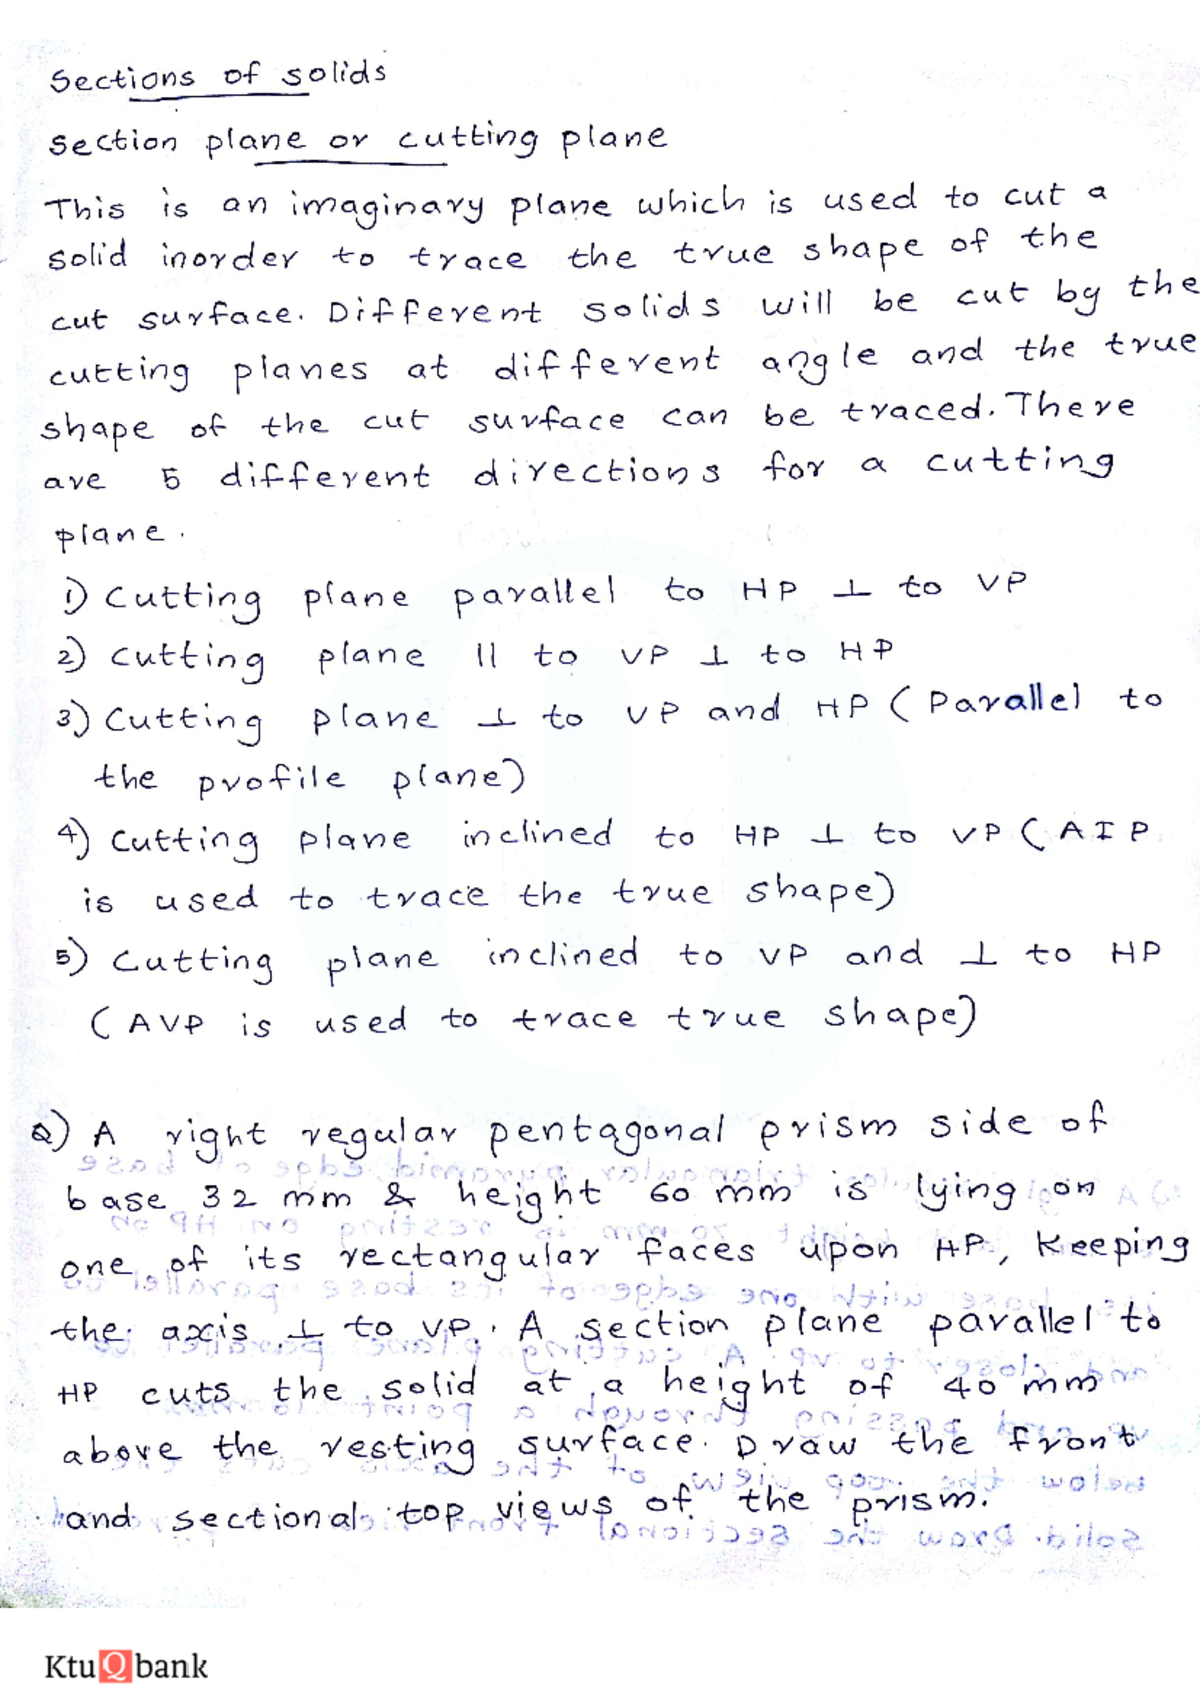 Sections of solids
Section plane or cutting plane
This is an imaginary plane which is used to cut a
solid inorder to trace the true shape of the
cut surface. Different solids will be cut by the
cutting planes at different angle and the true
shape of the cut surface can be traced. There
are 5 different directions for a cutting
plane.
1) Cutting plane parallel to HP ⊥ to VP
2) Cutting plane || to VP ⊥ to HP
3) Cutting plane ⊥ to VP and HP (Parallel to
the profile plane)
4) Cutting plane inclined to HP ⊥ to VP (AIP
is used to trace the true shape)
5) Cutting plane inclined to VP and ⊥ to HP
(AVP is used to trace true shape)
Q) A right regular pentagonal prism side of
base 32 mm & height 60 mm is lying on
one of its rectangular faces upon HP, Keeping
the axis ⊥ to VP. A section plane parallel to
HP cuts the solid at a height of 40 mm
above the resting surface. Draw the front
and sectional top views of the prism.
KtuQbank